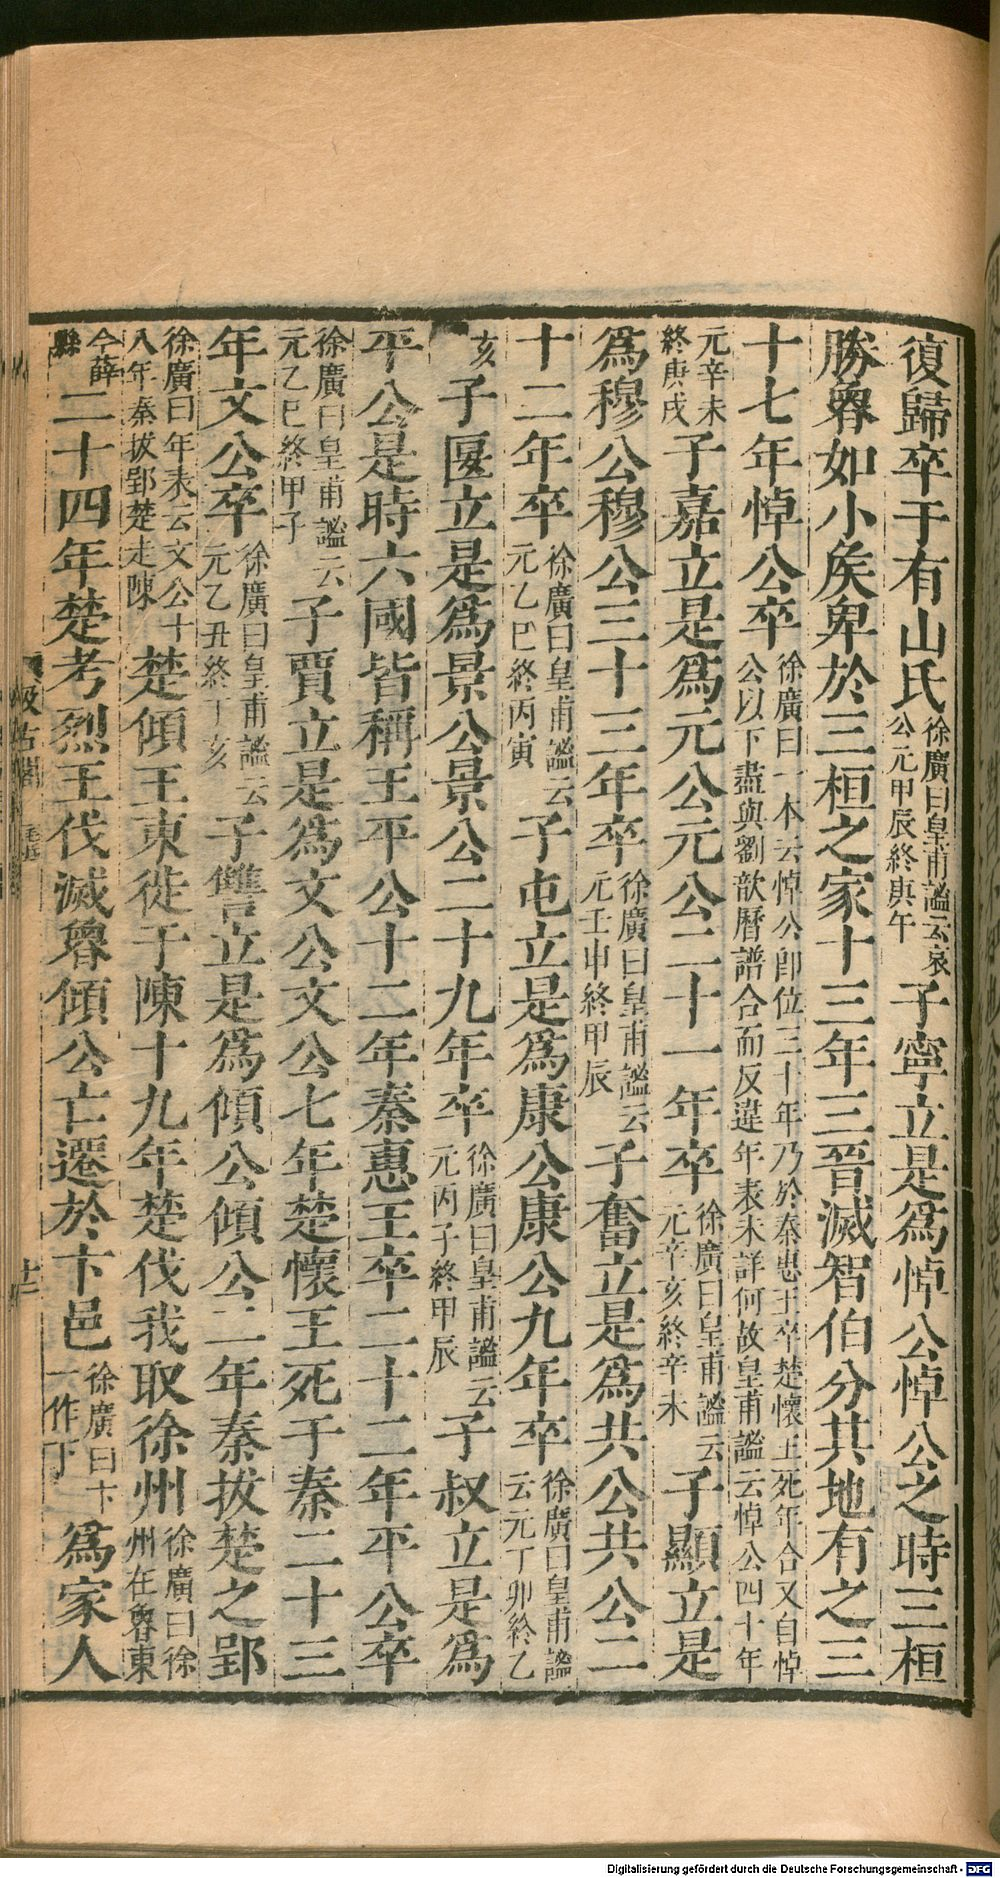 復歸卒于有山氏徐廣曰皇甫謐云哀公元甲辰終庚午子寧立是爲悼公悼公之時三桓
勝魯如小矦卑於三桓之家十三年三晉滅智伯分其地有之三
十七年悼公卒徐廣曰一本云悼公卽位三十年乃於秦惠王卒楚懷王死年合又自悼公以下盡與劉歆曆譜合而反違年表未詳何故皇甫謐云悼公四十年
元辛未終庚戌子嘉立是爲元公元公二十一年卒徐廣曰皇甫謐云元辛亥終辛未子顯立是
爲穆公穆公三十三年卒徐廣曰皇甫謐云元壬申終甲辰子奮立是爲共公共公二
十二年卒徐廣曰皇甫謐云元乙巳終丙寅子屯立是爲康公康公九年卒徐廣曰皇甫謐云元丁卯終乙
亥子匽立是爲景公景公二十九年卒徐廣曰皇甫謐云元丙子終甲辰子叔立是爲
平公是時六國皆稱王平公十二年秦惠王卒二十二年平公卒
徐廣曰皇甫謐云元乙巳終甲子子賈立是爲文公文公七年楚懷王死于秦二十三
年文公卒徐廣曰皇甫謐云元乙丑終丁亥子讐立是爲傾公傾公二年秦拔楚之郢
徐廣曰年表云文公十八年秦拔郢楚走陳楚傾王東徙于陳十九年楚伐我取徐州徐廣曰徐州在魯東
今薛縣二十四年楚考烈王伐滅魯傾公亡遷於卞邑徐廣曰卞一作下爲家人
汲古閣
十二
Digitalisierung gefördert durch die Deutsche Forschungsgemeinschaft - DFG